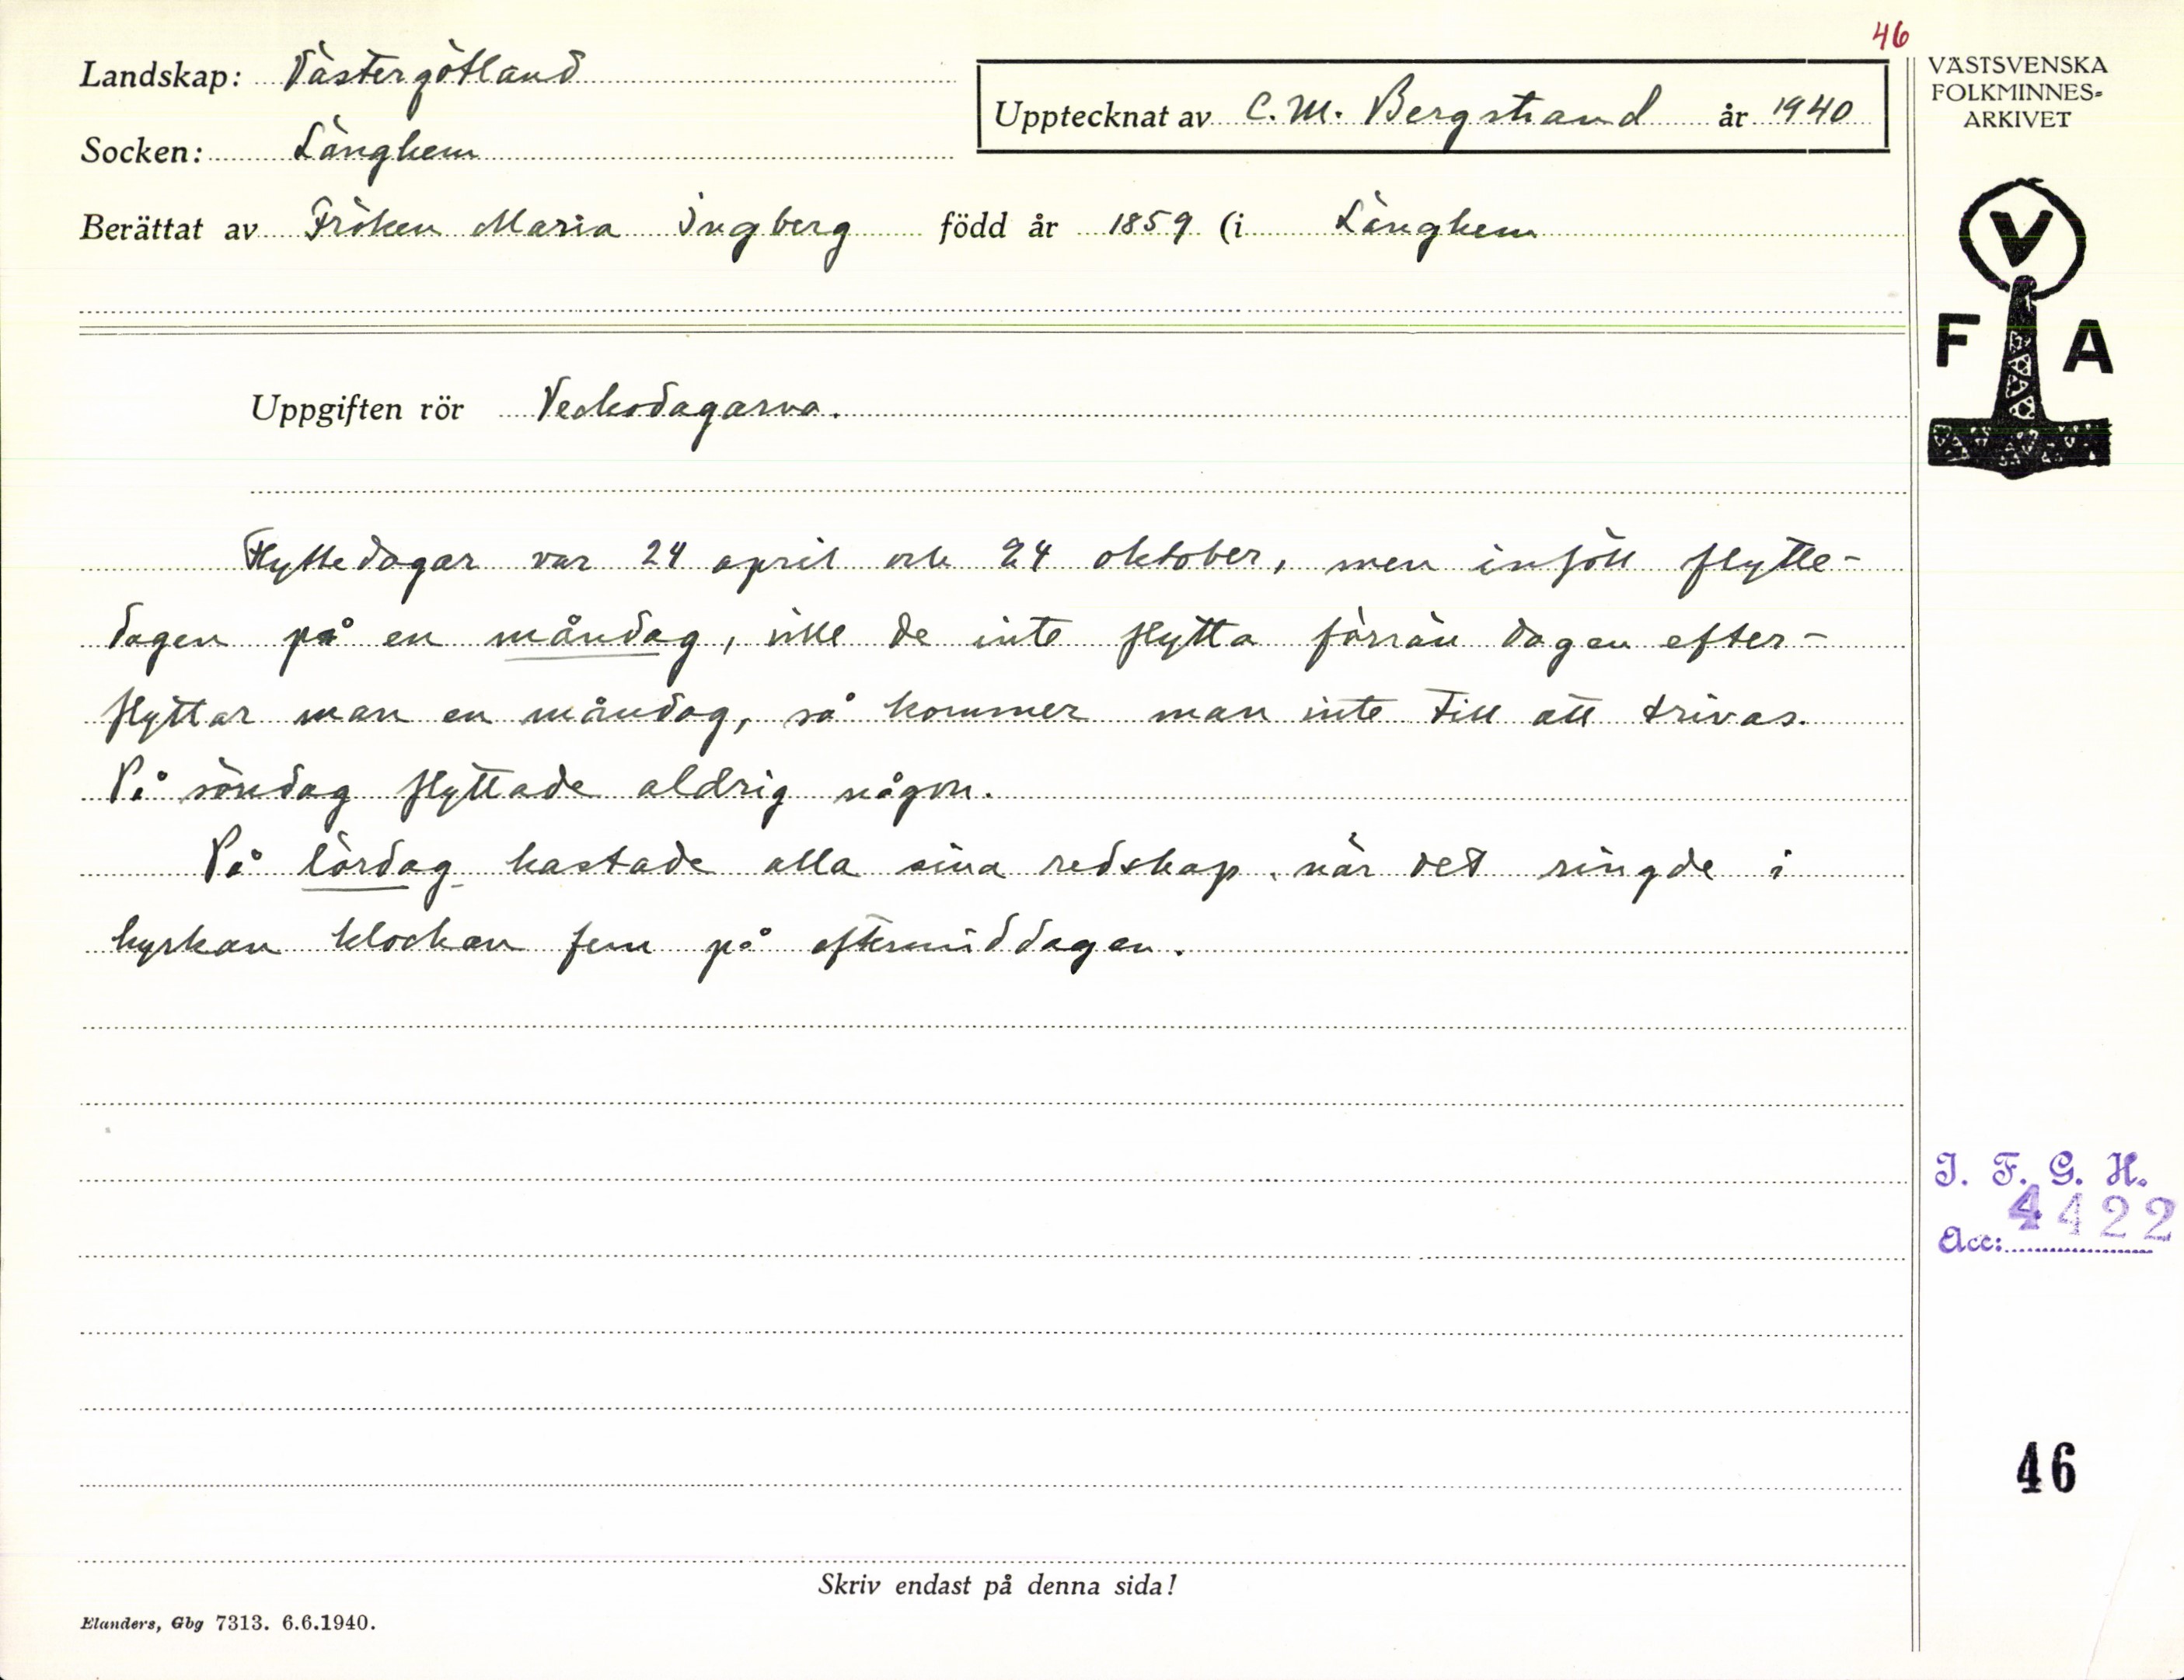 46
Landskap: Västergötland
Upptecknat av C. M. Bergstrand år 1940
Socken: Länghem
Berättat av Fröken Maria Ingberg född år 1859 (i Länghem
Uppgiften rör Veckodagarna.
Flyttedagar var 24 april och 24 oktober, men inföll flytte-
dagen på en måndag, ville de inte flytta förrän dagen efter -
flyttar man en måndag, så kommer man inte till att trivas.
På söndag flyttade aldrig någon.
På lördag kastade alla sina redskap, när det ringde i
kyrkan klockan fem på eftermiddagen.
Skriv endast på denna sida!
Elanders, Gbg 7313. 6.6.1940.
VÄSTSVENSKA
FOLKMINNES-
ARKIVET
V
F A
I. F. G. H.
Acc: 4422
46